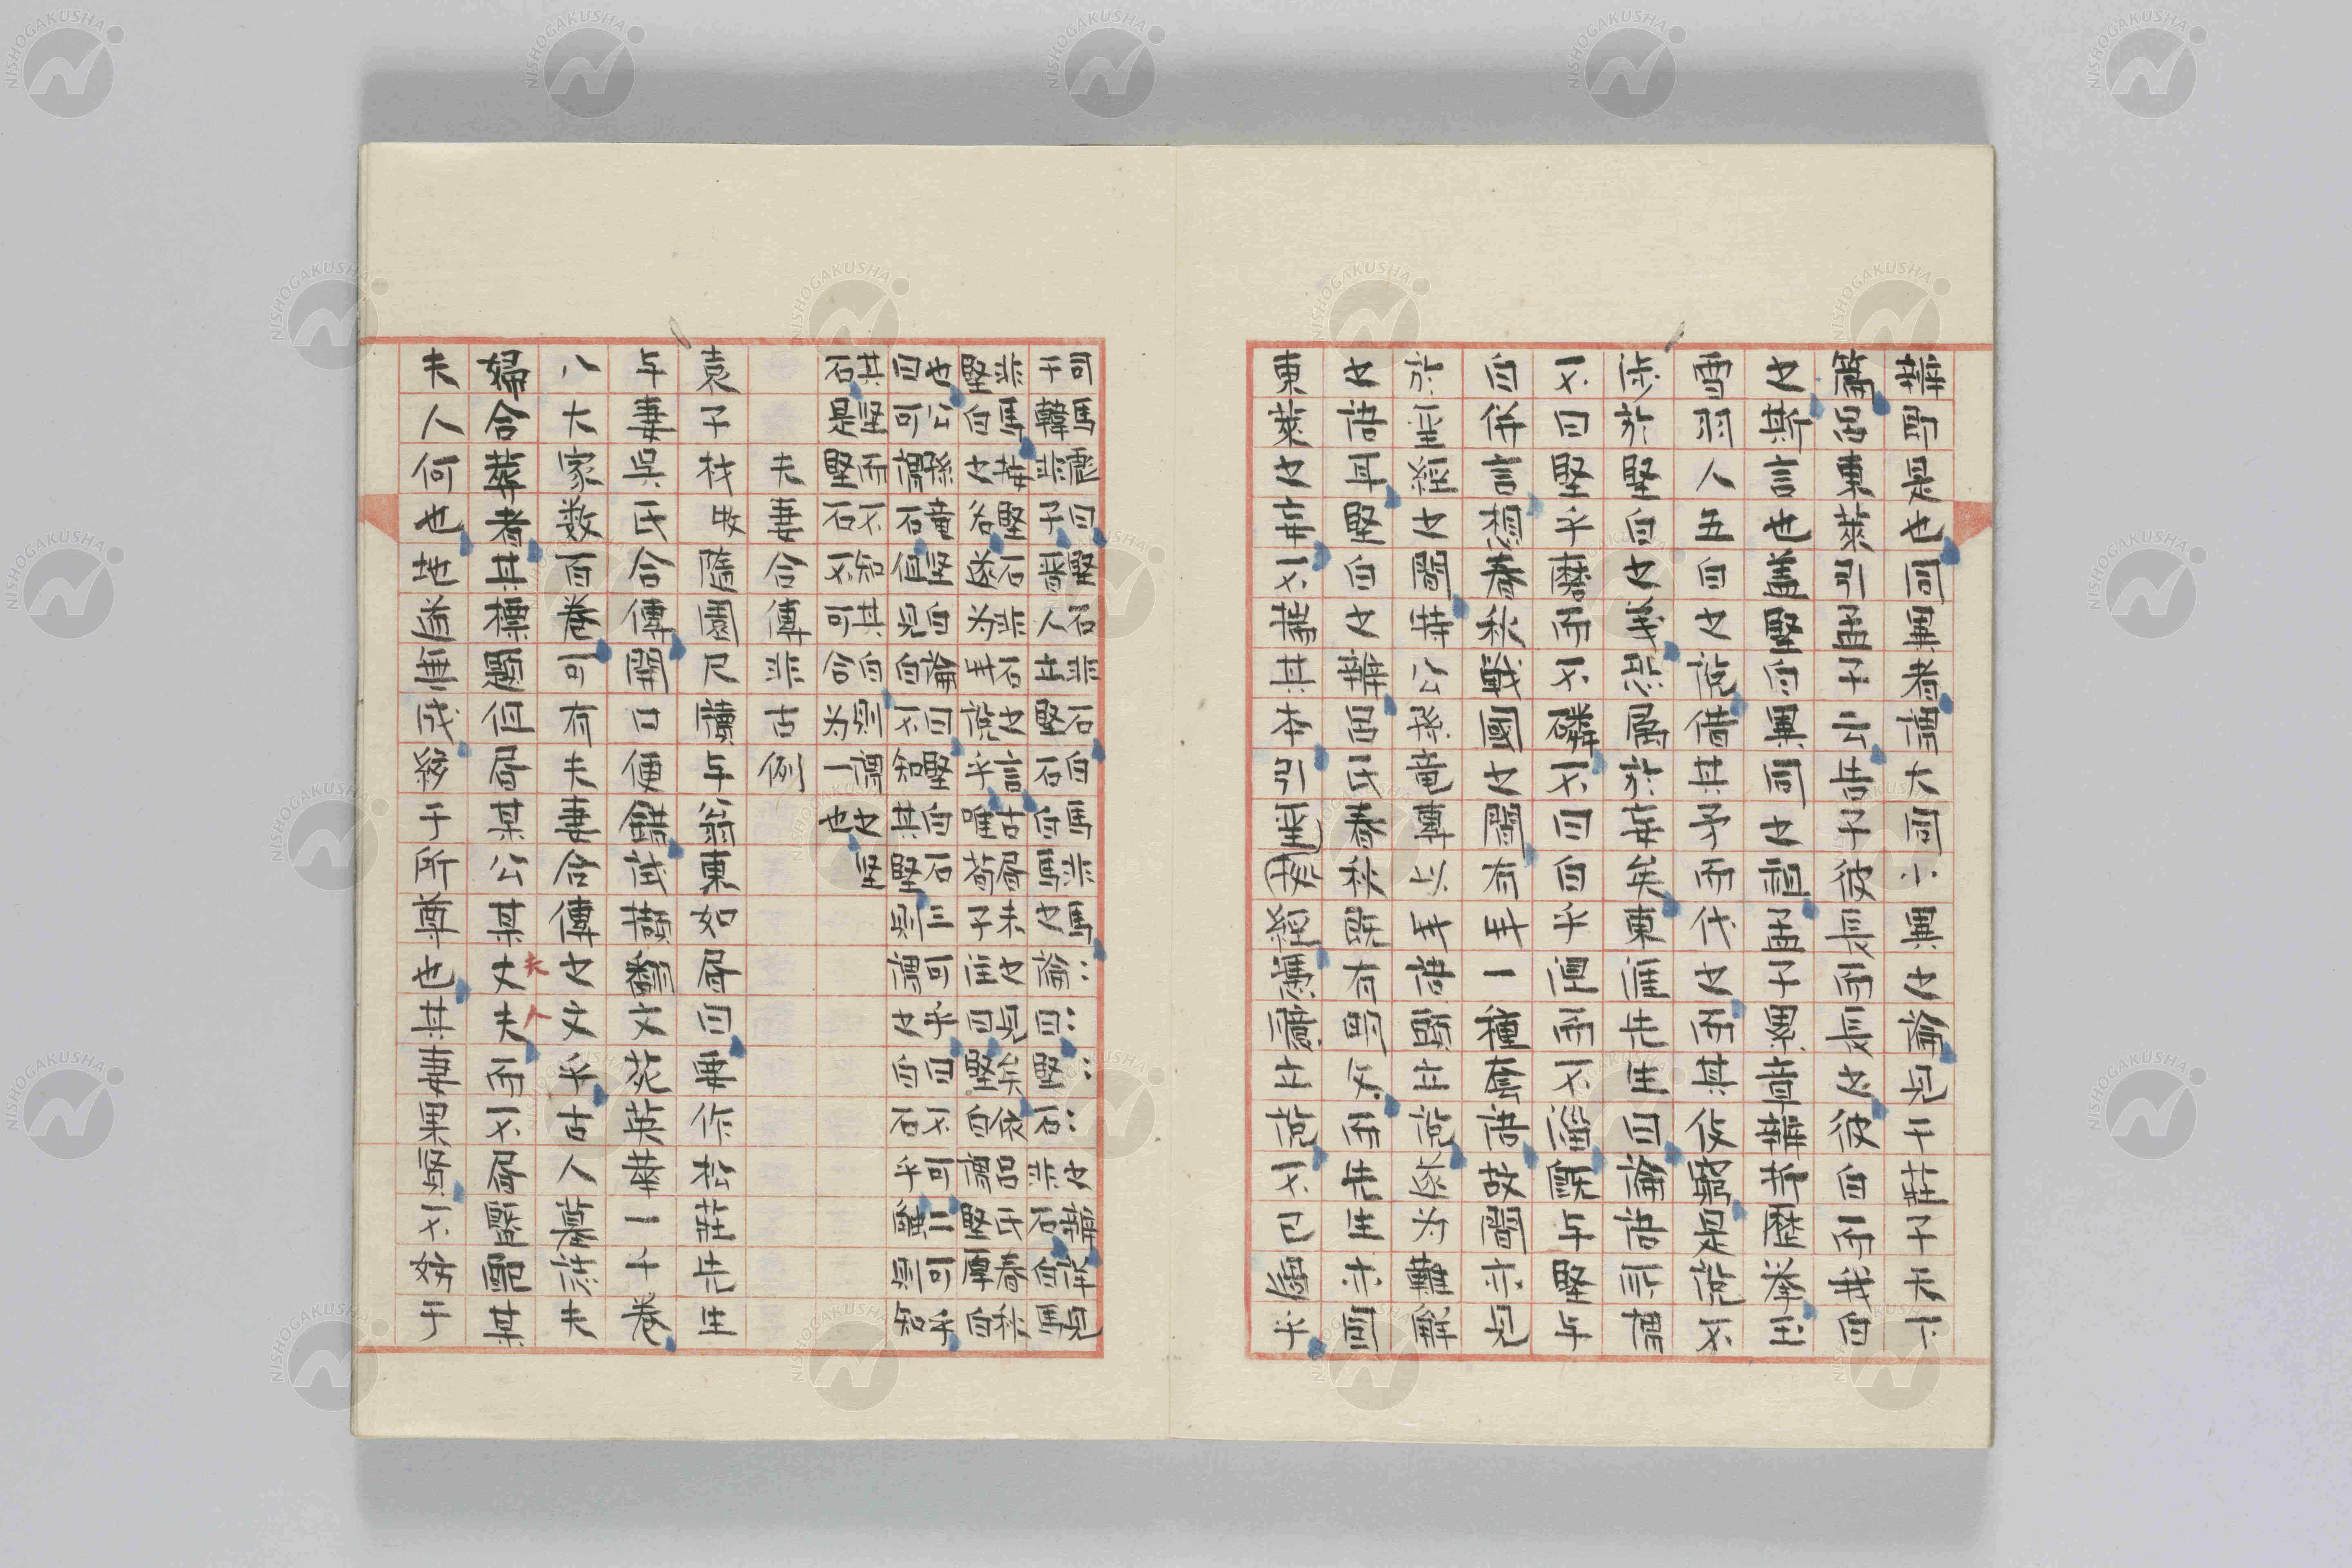 辯是也同異者謂大同小異之論見于莊子天下
篇呂東萊引孟子公告子彼長而長之彼白而我白
之斯言也蓋堅白異同之祖孟子累章辯折歷挙玉
雪羽人五白之説借其矛而伐之而其役窮是説不
於堅白之義属於無矣東涯先生曰論語所謂
不曰堅乎磨而不磷不曰白乎涅而不淄既与堅与
白併言想春秋戦國之間有此一種套語故間亦見
於之間公孫竜専以此語出説遂为難解
之語耳堅白之辯呂氏春秋雖有明文而先生亦同
東萊之不其本引出説不已乎
司馬彪曰堅石非石白馬非馬論之辯詳見
于韓非子晋人出堅石白馬之論曰堅石非石白馬
非馬堅石非石之言古昔未之見矣呂氏春秋
堅白之名遂为此説乎唯荀子注曰堅白謂堅厚白
也公孫竜堅白論曰堅白石三可乎曰不可二可乎
曰可謂石但見白不知其堅則謂之白石乎觸則知
其堅而不知其白則謂之堅
石是堅石不可合为一也
夫妻合傳非古例
袁子才隨園尺牘与翁東如書曰要作松莊先生
与妻呉氏合傳開口便錯試翻文苑英華一千卷
八大家数百卷可有夫妻合傳之文乎古人墓誌夫
婦合葬者其標題但書某公某丈夫而不書曁配某
夫人
夫人何也地道無成繫于所尊也其妻果賢不妨于